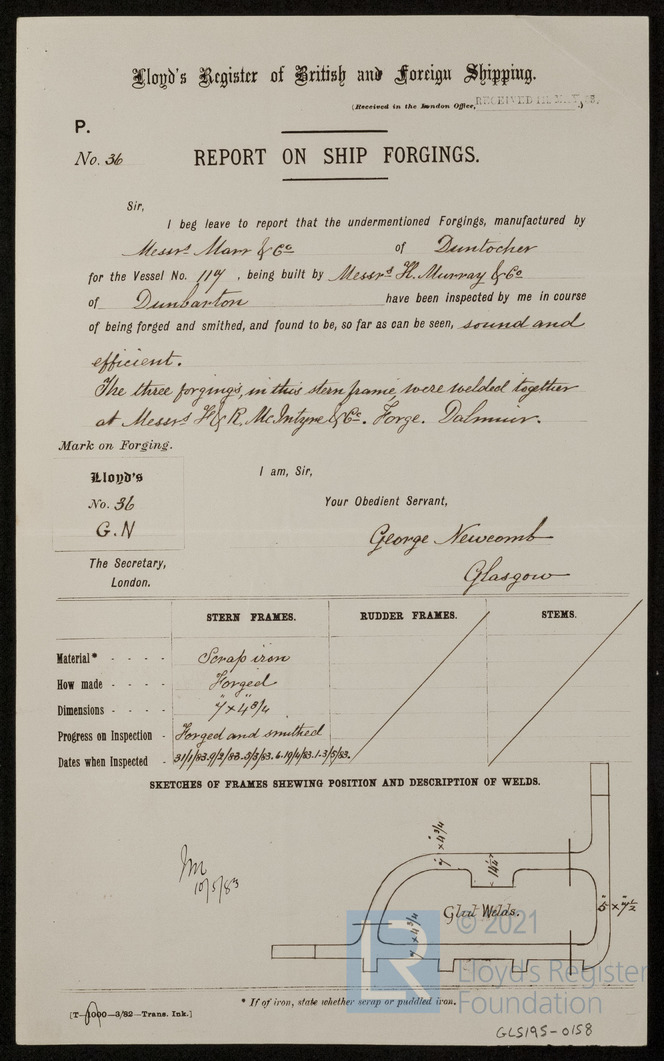 Lloyd's Register of British and Foreign Shipping.
(Received in the London Office, RECEIVED
P.
No. 36 REPORT ON SHIP FORGINGS.
Sir,
I beg leave to report that the undermentioned Forgings, manufactured by
Messrs Marr & Co of Duntocher
for the Vessel No. 117, being built by Messrs H. Murray & Co
of Dunbarton have been inspected by me in course
of being forged and smithed, and found to be, so far as can be seen, sound and
efficient.
The three forgings, in this stern frame, were welded together
at Messrs H & R. McIntyre & Co. Forge. Dalmuir.
Mark on Forging.
Lloyd's
No. 36
G.N
I am, Sir,
Your Obedient Servant,
George Newcomb
Glasgow
The Secretary,
London.
STERN FRAMES. RUDDER FRAMES. STEMS.
Material* - - - - Scrap iron
How made - - - - Forged
Dimensions - - - - 7" x 4 3/4"
Progress on Inspection - Forged and smithed
Dates when Inspected - 31/1/83. 9/2/83. 5/3/83. 6-19/4/83. 1-3/5/83.
SKETCHES OF FRAMES SHEWING POSITION AND DESCRIPTION OF WELDS.
10/5/83
7" x 4 3/4
14 1/2"
Glut Welds.
5" x 7 1/2"
7 x 4 3/4
© 2021
LR
Lloyd's Register
Foundation
* If of iron, state whether scrap or puddled iron.
[T—1000—3/82—Trans. Ink.]
GLS195-0158